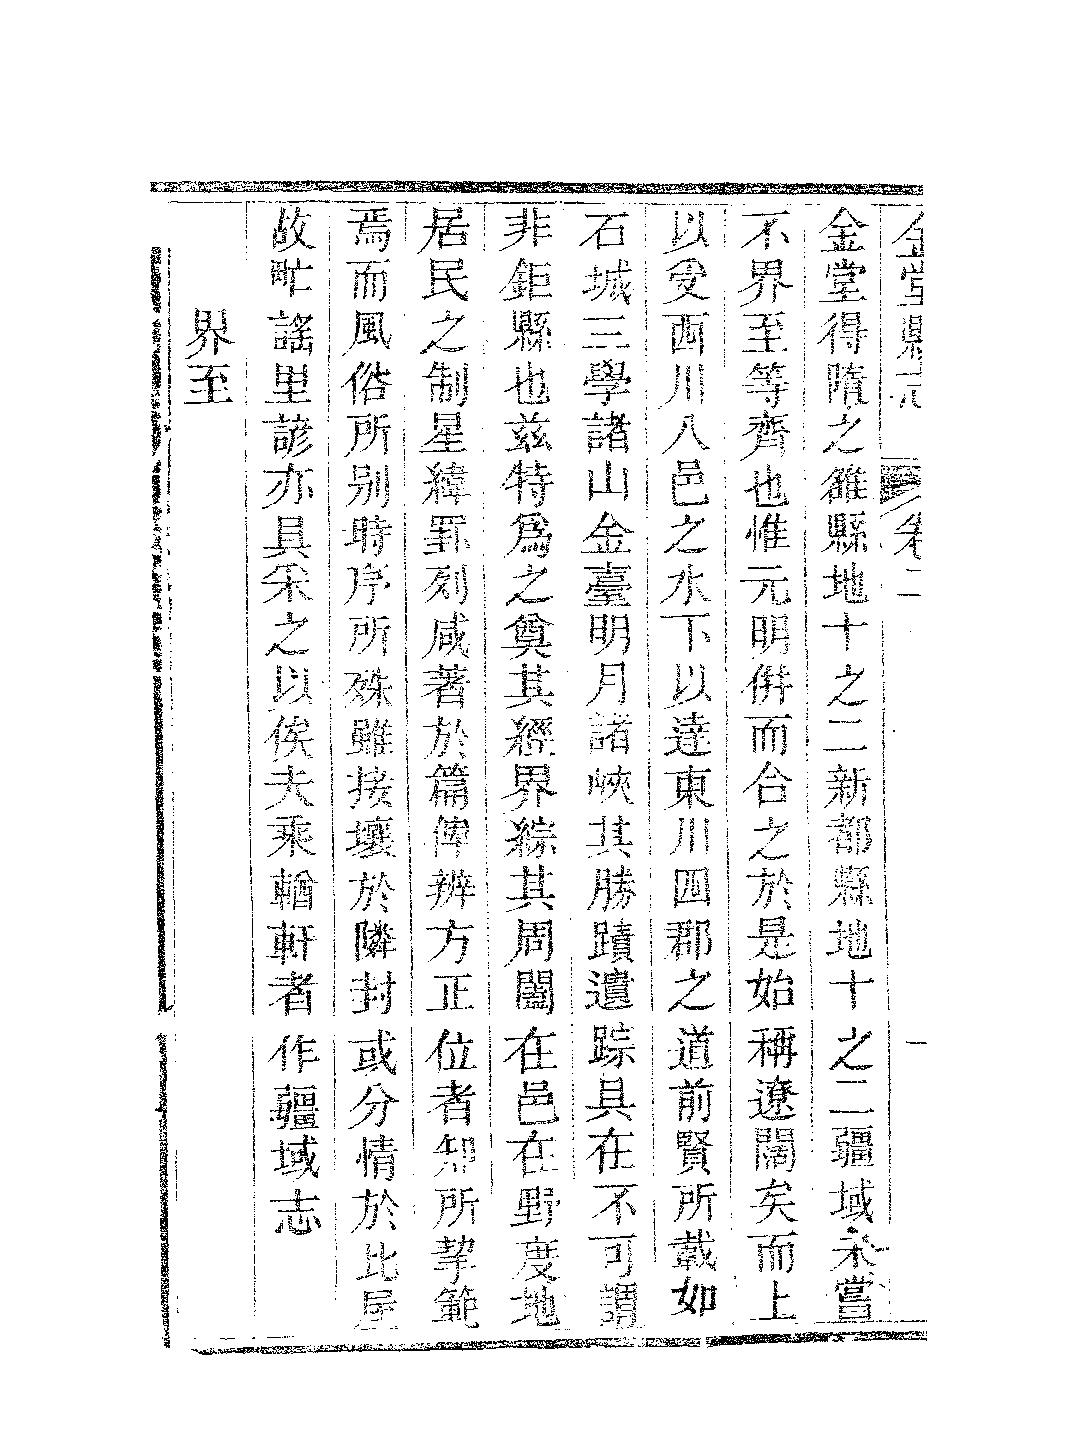 金堂縣志 卷二 一
金堂得隋之雒縣地十之二新都縣地十之二疆域未嘗
不界至等齊也惟元明併而合之於是始稱遼闊矣而上
以受西川八邑之水下以達東川四郡之道前賢所載如
石城三學諸山金臺明月諸峽其勝蹟遺踪具在不可謂
非鉅縣也茲特爲之奠其經界綜其周闊在邑在野度地
居民之制星緯罫列咸著於篇俾辨方正位者知所挈範
焉而風俗所别時序所殊雖接壤於隣封或分情於比屋
故甿謠里諺亦具采之以俟夫乘輶軒者作疆域志
界至